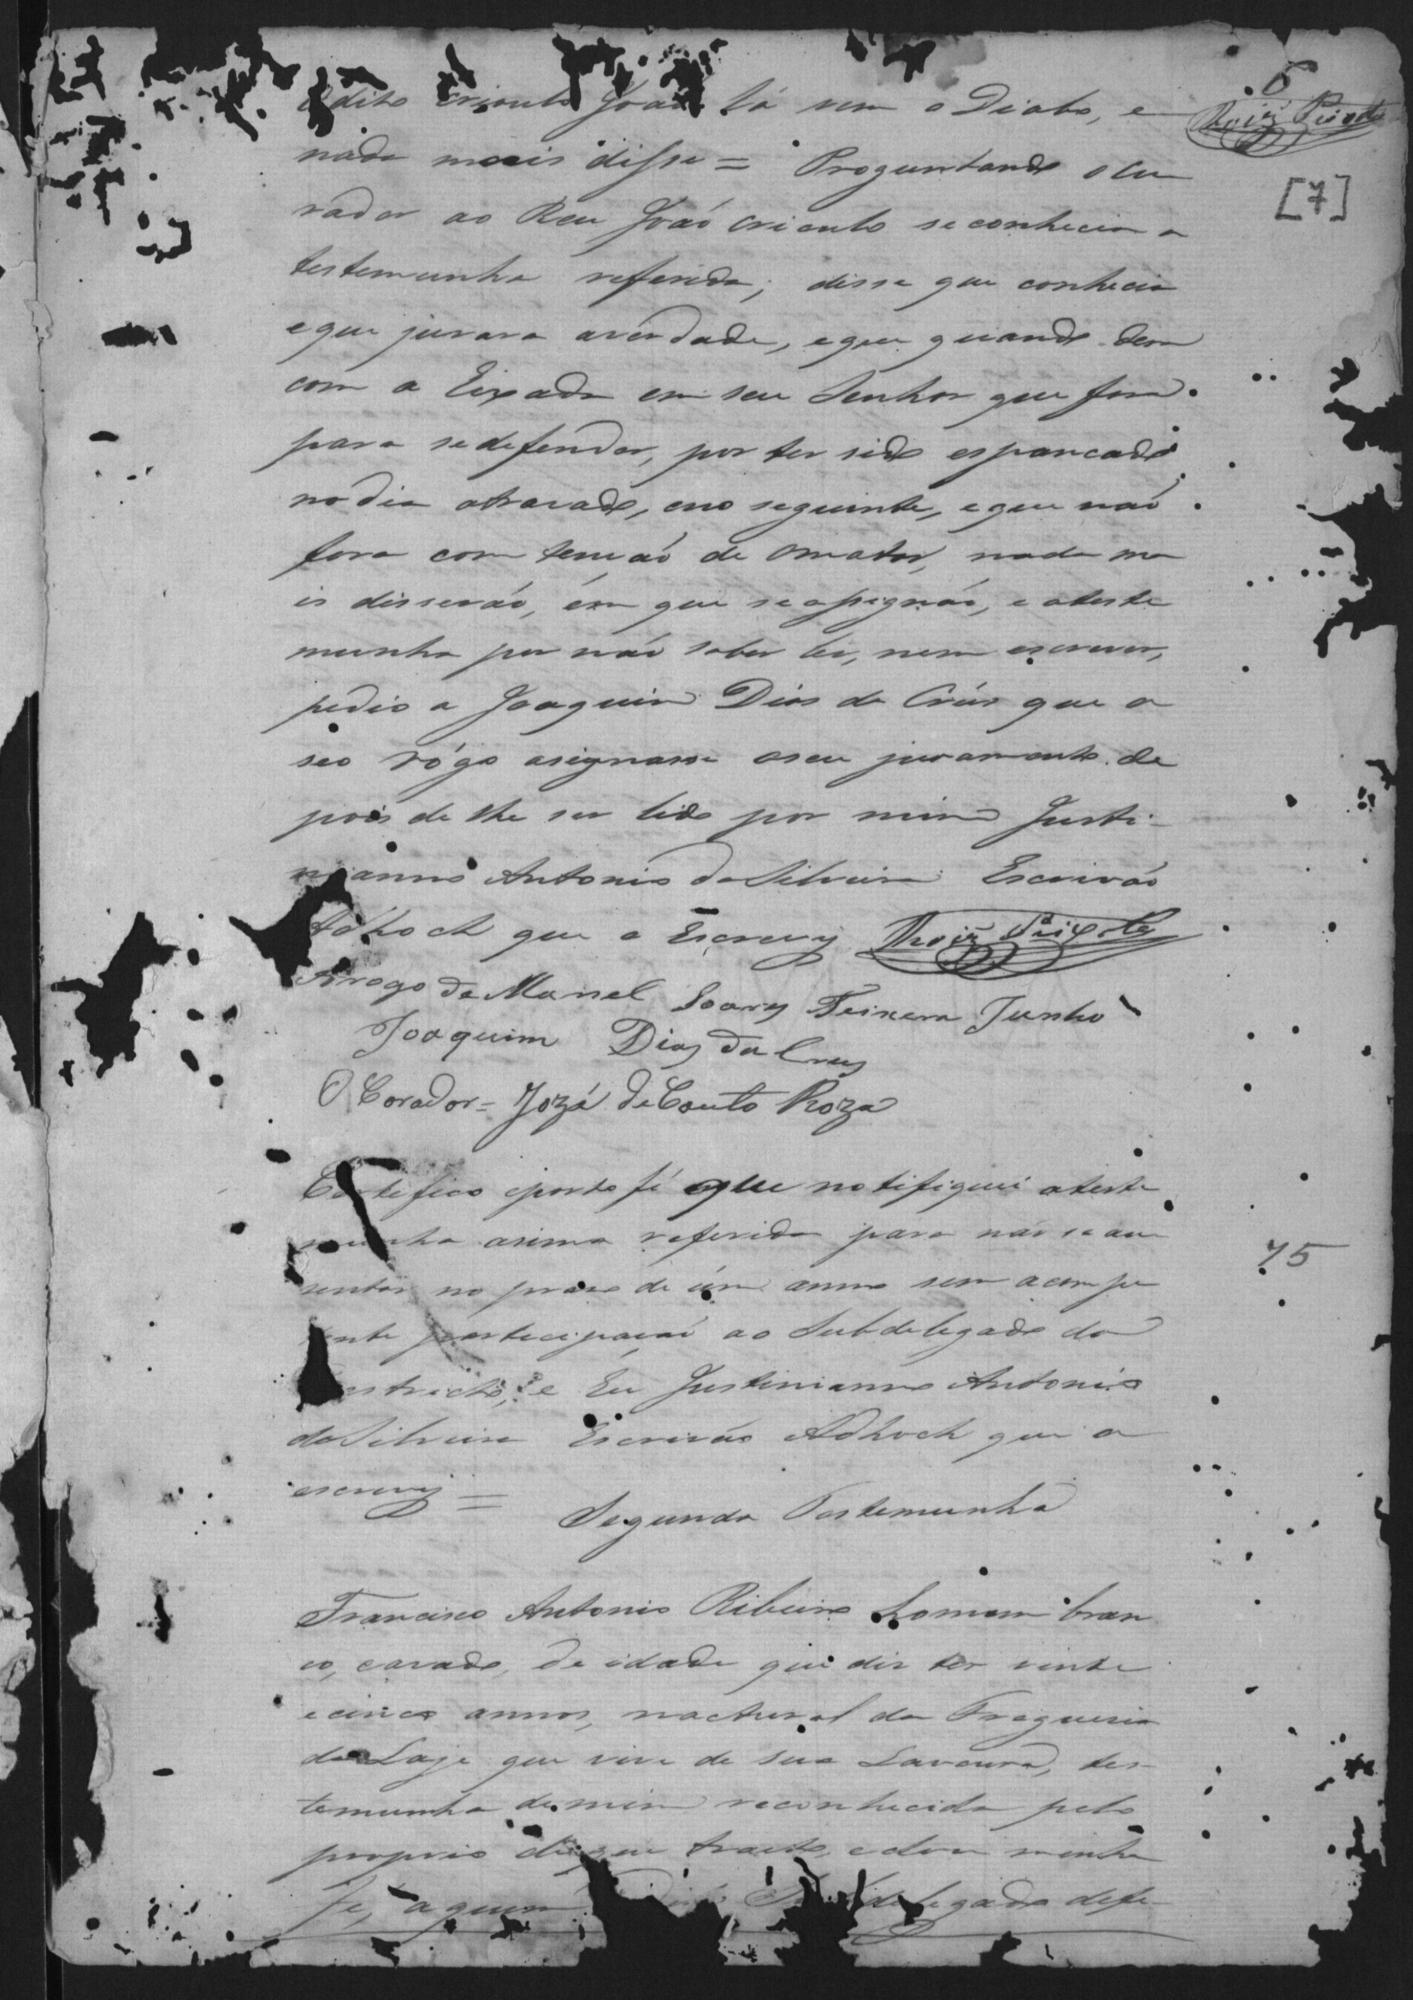 6
Roiz Peixoto
[7]
odito crioulo João lá vem o Diabo, e
nada mais disse = Proguntando o Cu
rador ao Reu João crioulo se conhecia a
testemunha referida; disse que conhecia
e que jurara averdade, e que quando deu
com a Eixada em seu Senhor que fora
para se defender, por ter sido espancado
no dia atrazado, e no seguinte, e que naõ
fora com tençaõ de o matar, nada ma
is disseraõ, em que se assignaõ, e a teste
munha por naõ saber ler, nem escrever,
pedio a Joaquim Dias da Crús que a
seo rógo asignasse oseu juramento de
pois de lhe ser lido por mim Justi-
nianno Antonio da Silveira Escrivaõ
Adhock que o Escrevy Roiz Peixoto
Arrogo de Manoel Soares Teixera Junho
Joaquim Dias da Cruz
O Corador = Jozé de Couto Roza
Certefico eporto fé que notifiquei a teste
munha asima referida para naõ se au
sentar no prazo de úm anno sem a compe
tente partecipacaõ ao Subdelegado do
Destricto, e Eu Justinianno Antonio
da Silveira Escrivaõ Adhock que o
escrevy =
75
Segunda Testemunha
Francisco Antonio Ribeiro homem bran
co, cazado, de idade que dis ter vinte
e cinco annos, nactural da Freguezia
da Laje que vive de sua Lavoura, tes-
temunha de mim reconhecida pelo
proprio de que tracto, e dou minha
fé, a quem Subdelegado defe